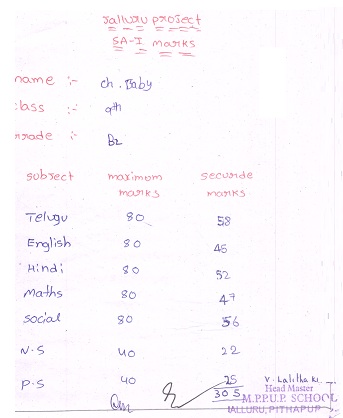 Jalluru project
SA-I marks
name :- ch. Baby
class :- 9th
grade :- B2
subject maximum marks securde marks
Telugu 80 58
English 80 45
Hindi 80 52
Maths 80 47
social 80 56
N.S 40 22
P.S 40 25
305
V. Lalitha Ku
Head Master
M.P.P.U.P. SCHOOL
JALLURU, PITHAPUR